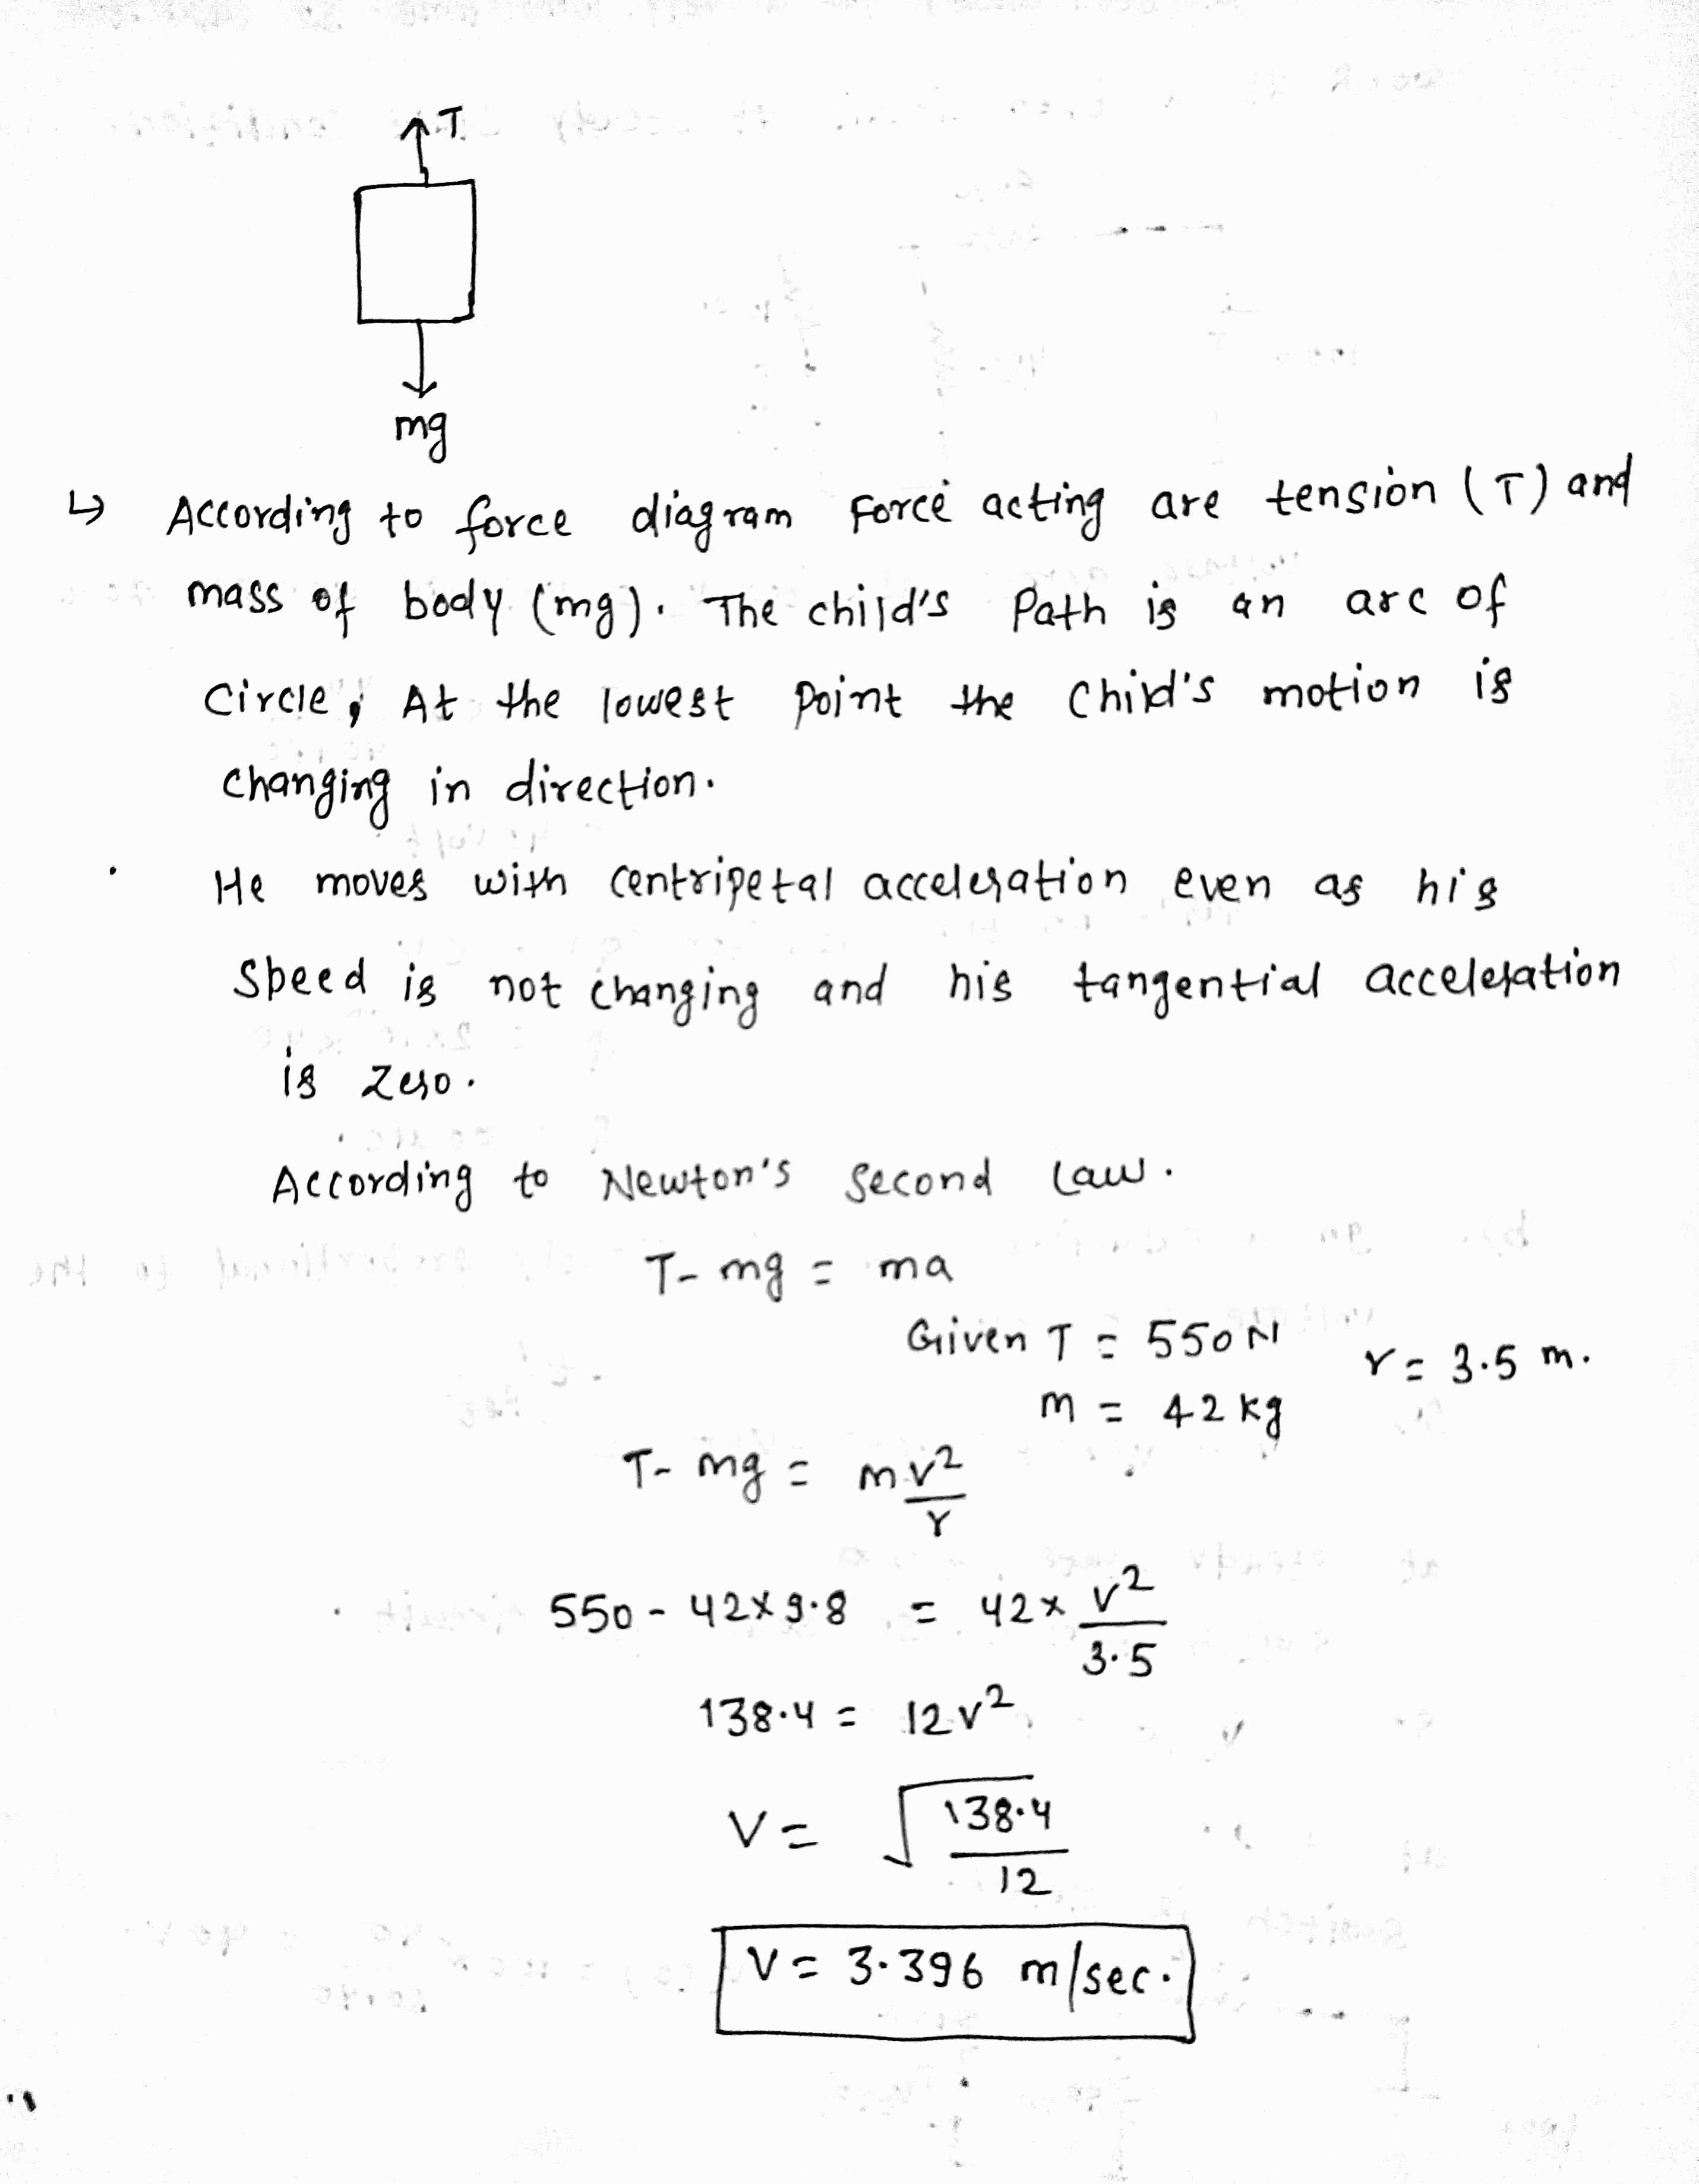 T
mg
↳ According to force diagram Force acting are tension (T) and
mass of body (mg). The child's Path is an arc of
Circle, At the lowest Point the Child's motion is
changing in direction.
He moves with centripetal acceleration even as his
Speed is not changing and his tangential acceleration
is zero.
According to Newton's Second Law.
T- mg = ma
Given T = 550 N r = 3.5 m.
m = 42 kg
T- mg = m v²/r
550 - 42×9.8 = 42× v²/3.5
138.4 = 12v²
V = √138.4/12
V = 3.396 m/sec.